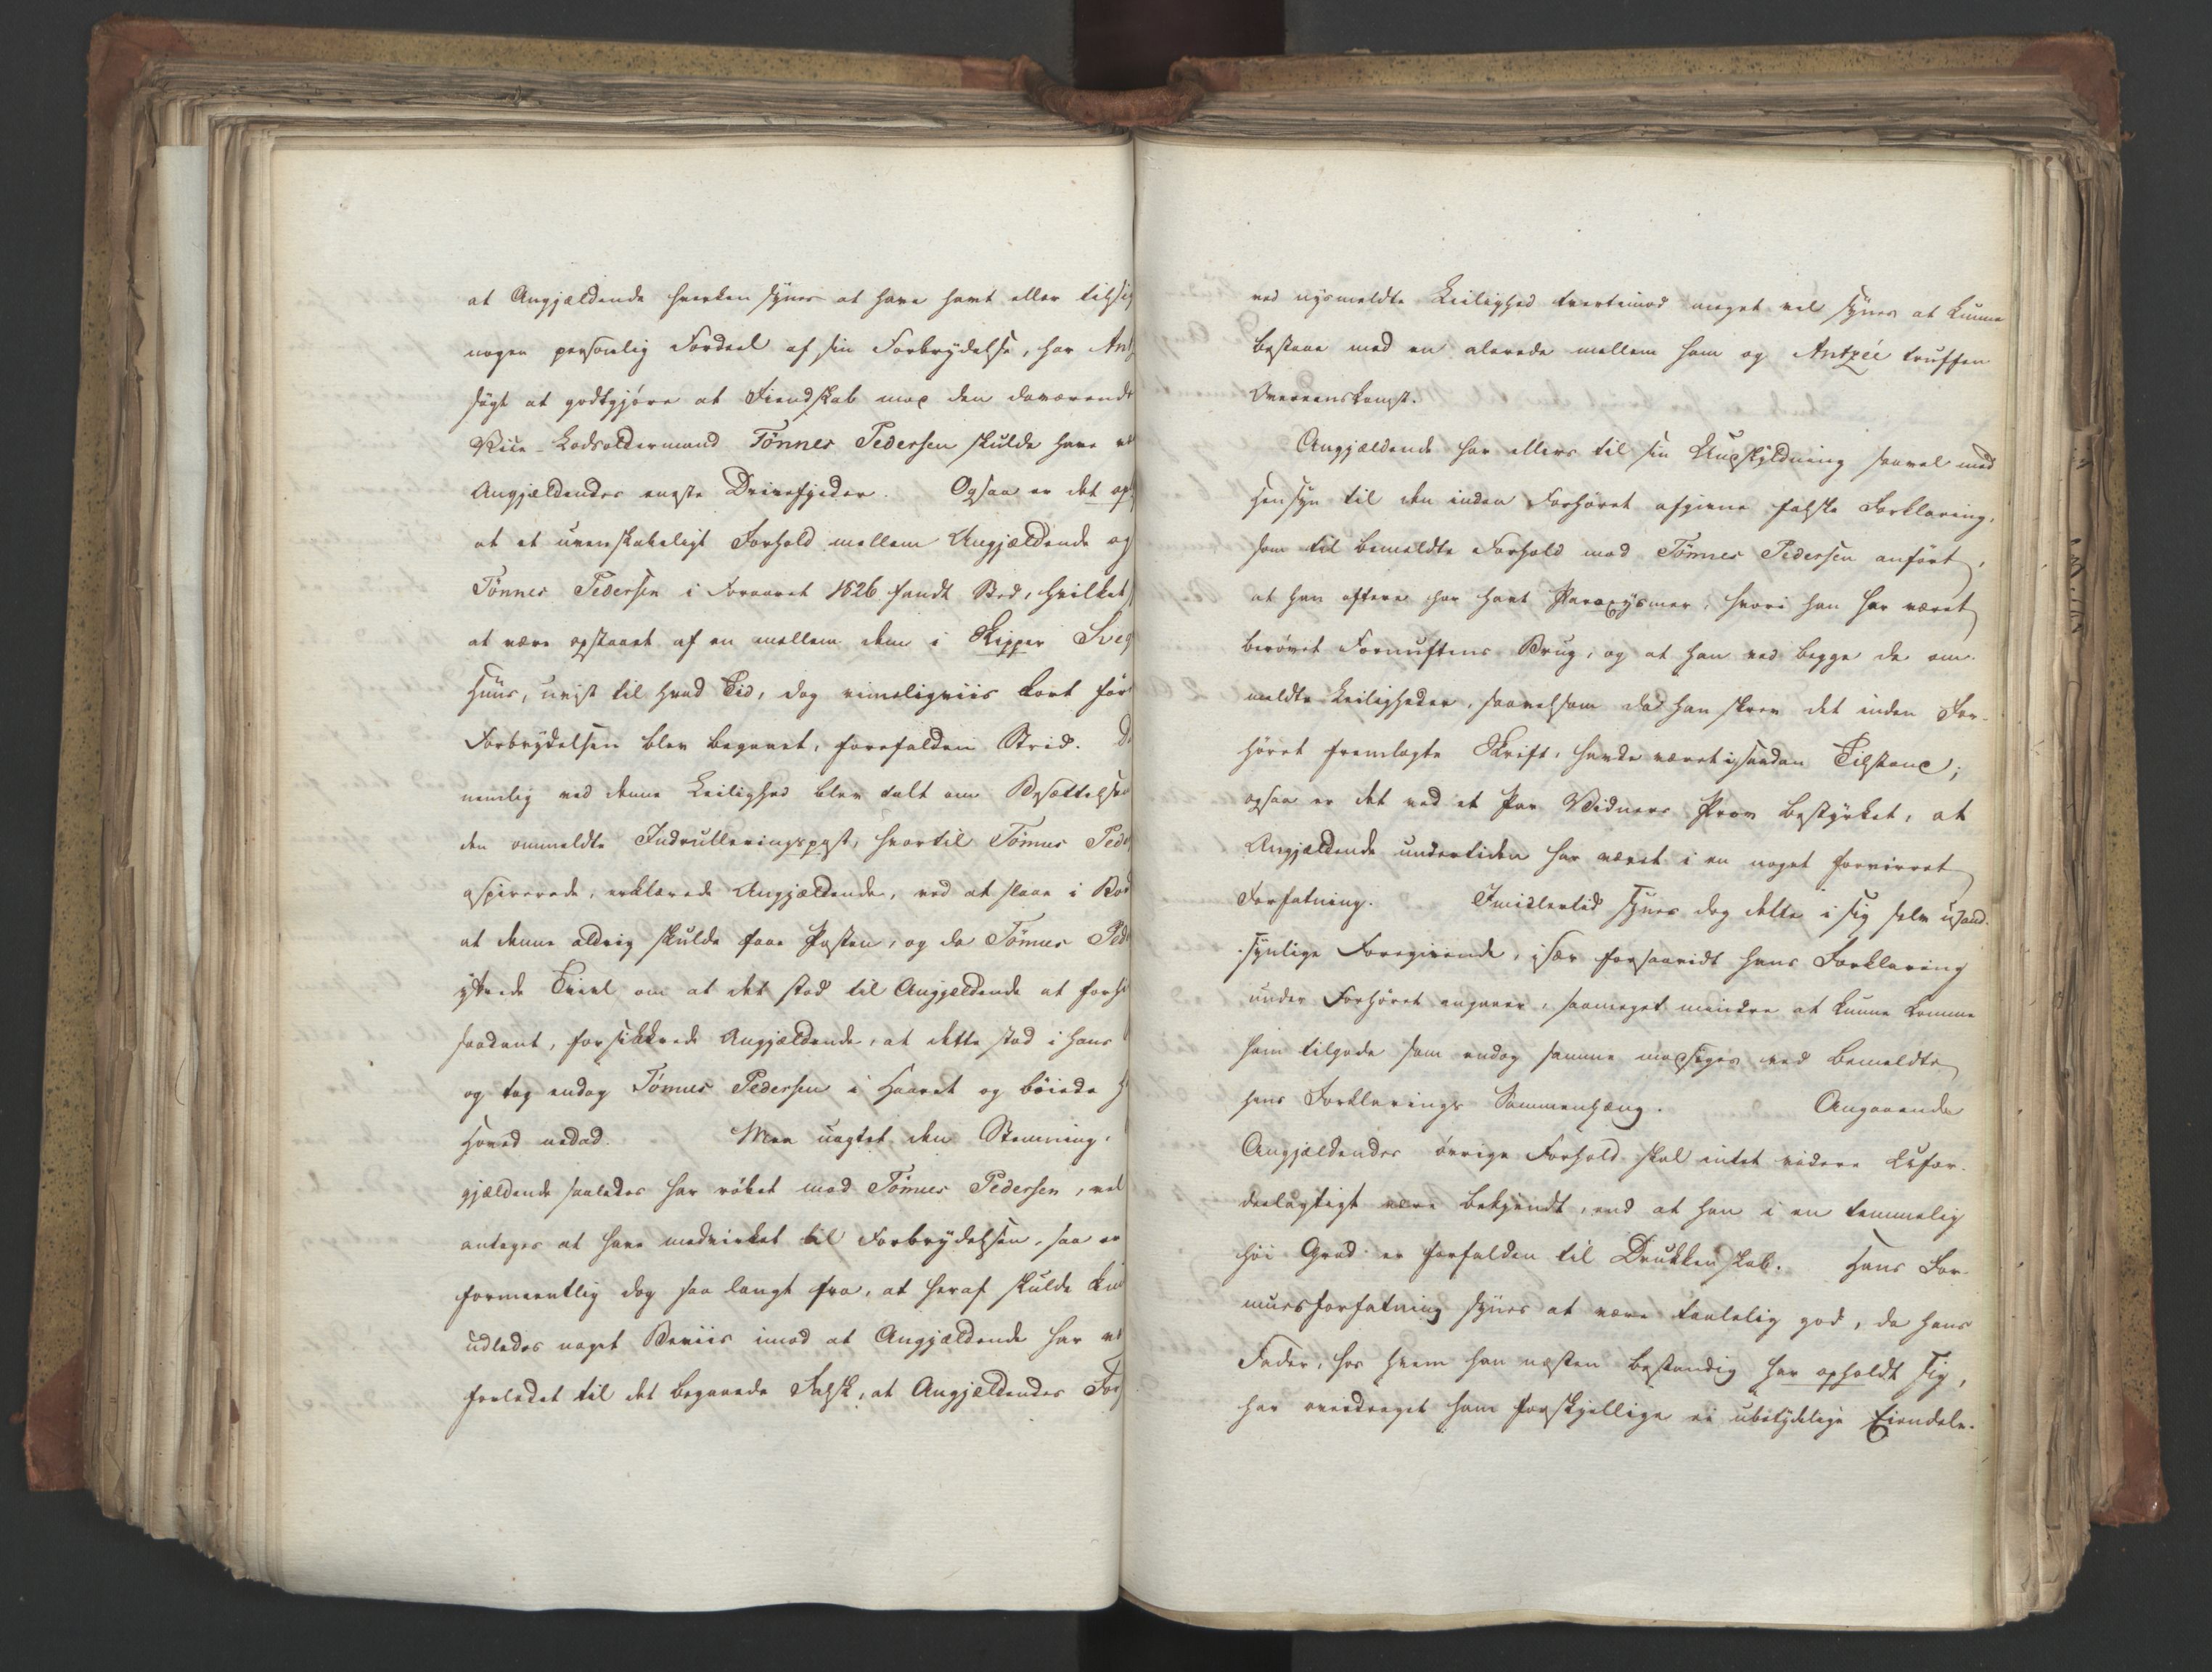 at Angjældende hverken synes at have havt eller tilsig
nogen personlig Fordeel af sin Forbrydelse, har Antz
søgt at godtgjøre at Fiendskab mod den daværende
Vice-Lodsoldermand Tønnes Pedersen skulde have
Angjældendes eneste Drivefjeder. Ogsaa er det opl
at et uvenskabeligt Forhold mellem Angjældende og
Tønnes Pedersen i Foraaret 1826 fandt Sted, hvilket
at være opstaaet af en mellem dem i Skipper Sveg
Huus, uvist til hvad Tid, dog rimeligviis kort før
Forbrydelsen blev begaaet, forefalden Strid. D
nemlig ved denne Leilighed blev talt om Besættelsen
den ommeldte Indrulleringspost, hvortil Tønnes Ped
aspirerede, erklærede Angjældende, ved at slaae i Bor
at denne aldrig skulde faae Posten, og da Tønnes Ped
yttrede Tvivl om at det stod til Angjældende at forh
saadant, forsikkrede Angjældende, at dette stod i hans
og tog endog Tønnes Pedersen i Haaret og bøiede h
Hoved nedad. Men uagtet den Stemning,
gjældende saaledes har røbet mod Tønnes Pedersen, vel
antages at have medvirket til Forbrydelsen, saa er
formeentlig dog saa langt fra, at heraf skulde kun
udledes noget Beviis imod at Angjældende har
forledet til det begaaede Falsk, at Angjældendes For
ved nysmeldte Leilighed tvertimod meget vel synes at kunne
bestaae med en alerede mellem ham og Antzée truffen
Overeenskomst.
Angjældende har ellers til sin Undskyldning saavel med
Hensyn til den inden Forhøret afgivne falske Forklaring,
som til bemeldte Forhold mod Tønnes Pedersen anført,
at han oftere har havt Paroxysmer, hvori han har været
berøvet Fornuftens Brug, og at han ved begge de om-
meldte Leiligheder, saavelsom da han skrev det inden For-
høret fremlagte Skrift, havde været i saadan Tilstand;
ogsaa er det ved et Par Vidners Prov bestyrket, at
Angjældende undertiden har været i en noget forvirret
Forfatning. Imidlertid synes dog dette i sig selv usand-
synlige Foregivende, især forsaavidt hans Forklaring
under Forhøret angaaer, saameget mindre at kunne komme
ham tilgode som endog samme modsiges ved bemeldte
hans Forklarings Sammenhæng. Angaaende
Angjældendes øvrige Forhold skal intet videre Ufor-
deelagtigt være bekjendt, end at han i en temmelig
høi Grad er forfalden til Drukkenskab. Hans For-
muesforfatning synes at være taalelig god, da hans
Fader, hos hvem han næsten bestandig har opholdt sig,
har overdraget ham forskjellige ei ubetydelige Eiendele.